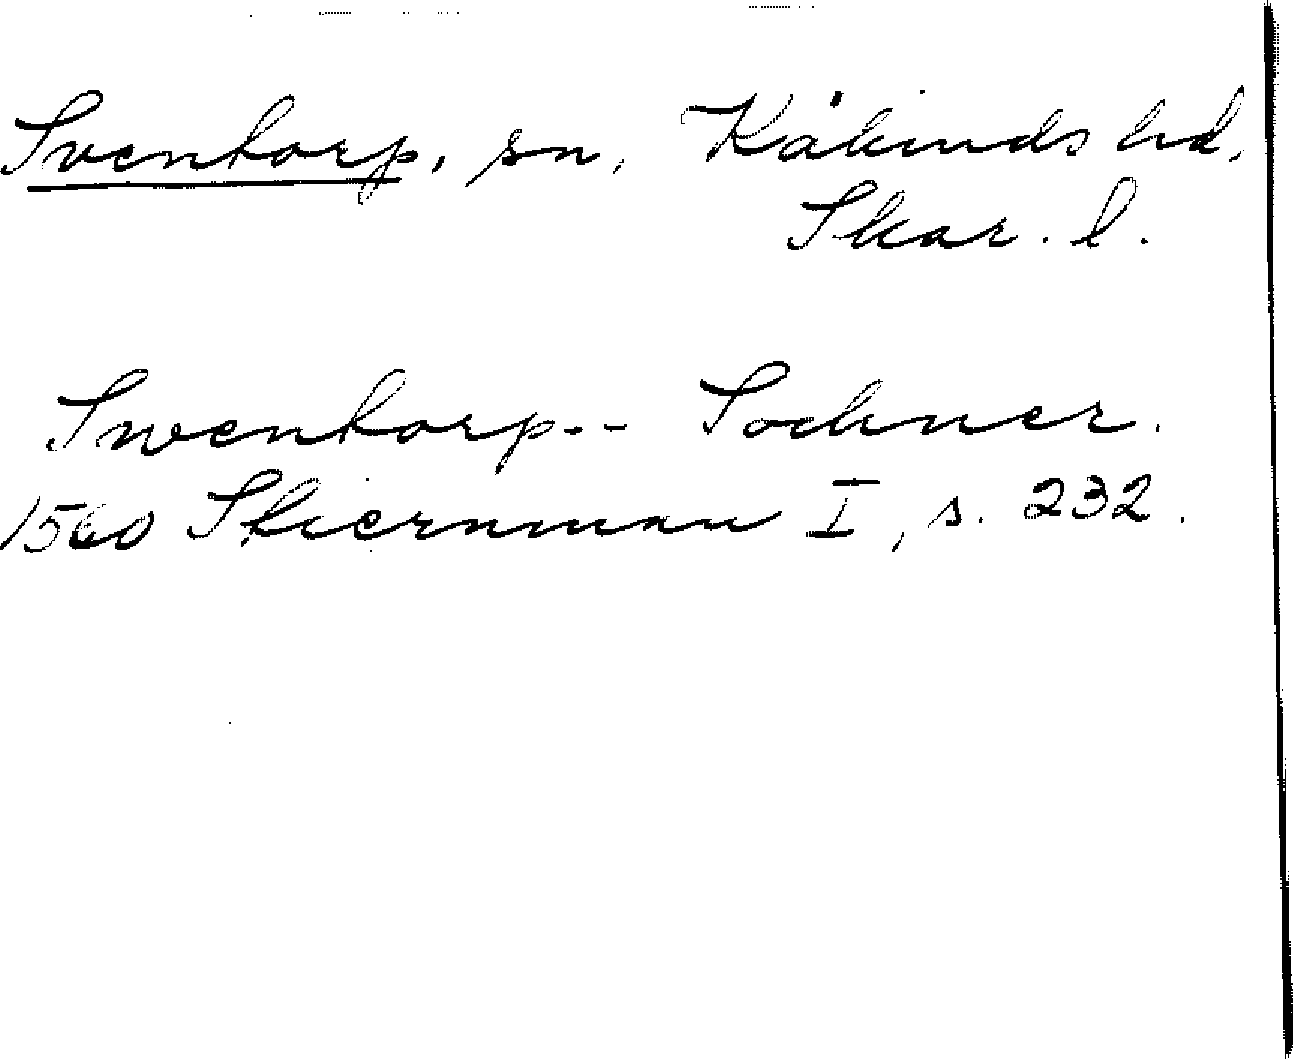 Sventorp, sn, Kåkinds hd,
Skar. l.
Swentorp-- Sochner.
1560 Stiernman I, s. 232.